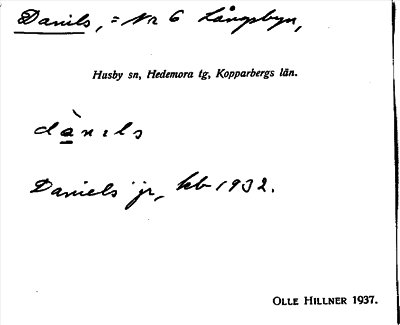 Daniels, = Nr 6 Långsbyn,
Husby sn, Hedemora tg, Kopparbergs län.
dàn:ls
Daniels jr, kb 1932.
OLLE HILLNER 1937.